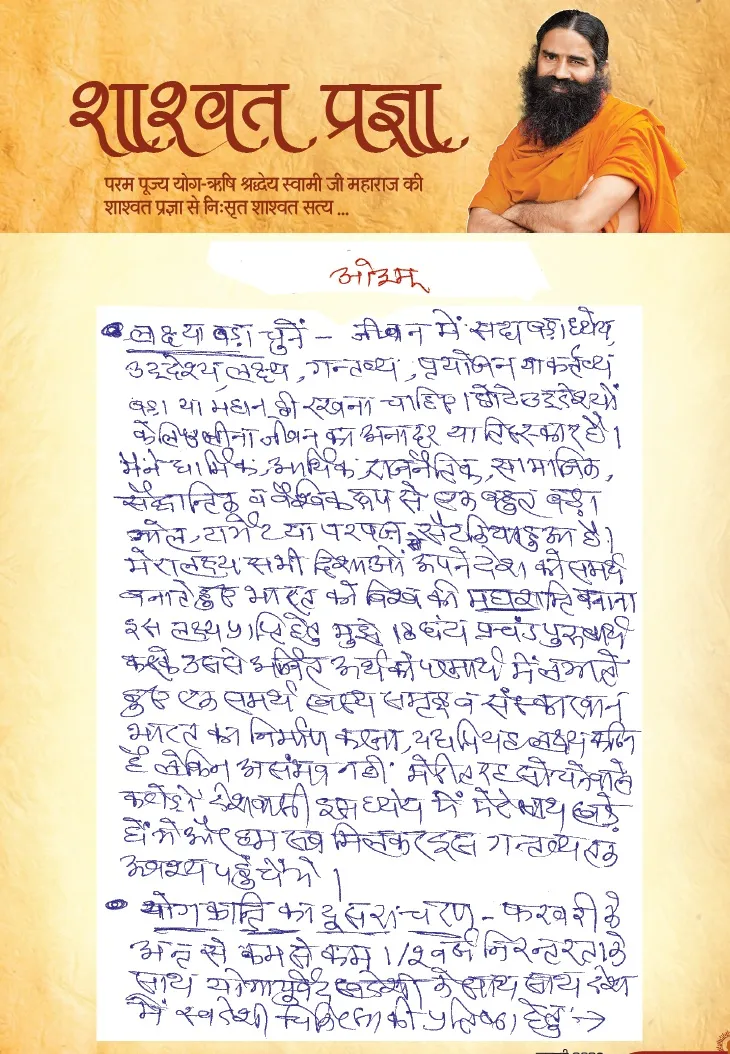 शाश्वत प्रज्ञा
परम पूज्य योग-ऋषि श्रद्धेय स्वामी जी महाराज की
शाश्वत प्रज्ञा से निःसृत शाश्वत सत्य ...
ओ३म्
लक्ष्य बड़ा चुनें – जीवन में सदा बड़ा ध्येय,
उद्देश्य, लक्ष्य, गन्तव्य, प्रयोजन या कर्तव्य
बड़ा या महान् ही रखना चाहिए। छोटे उद्देश्यों
के लिए जीना जीवन का अनादर या तिरस्कार है।
मैंने धार्मिक, आर्थिक, राजनैतिक, सामाजिक,
सैद्धान्तिक व वैश्विक रूप से एक बहुत बड़ा
गोल, टार्गेट या परपज सैट किया हुआ है।
मेरा लक्ष्य सभी दिशाओं अपने देश को समर्थ
बनाते हुए भारत को विश्व की महाशक्ति बनाना
इस लक्ष्य प्राप्ति हेतु मुझे 18 घंटे प्रचंड पुरुषार्थ
करके उससे अर्जित अर्थ को परमार्थ में लगाते
हुए एक समर्थ स्वस्थ समृद्ध व संस्कारवान
भारत का निर्माण करना, यद्यपि यह लक्ष्य कठिन
है लेकिन असंभव नहीं मेरी तरह सोचने वाले
करोड़ों देशवासी इस ध्येय में मेरे साथ खड़े
होंगे और हम सब मिलकर इस गन्तव्य तक
अवश्य पहुंचेंगे।
योग क्रान्ति का दूसरा चरण – फरवरी के
अन्त से कम से कम 1/2 वर्ष निरन्तरता के
साथ योगायुर्वेद स्वदेशी के साथ साथ देश
में स्वदेशी चिकित्सा की प्रतिष्ठा हेतु :→